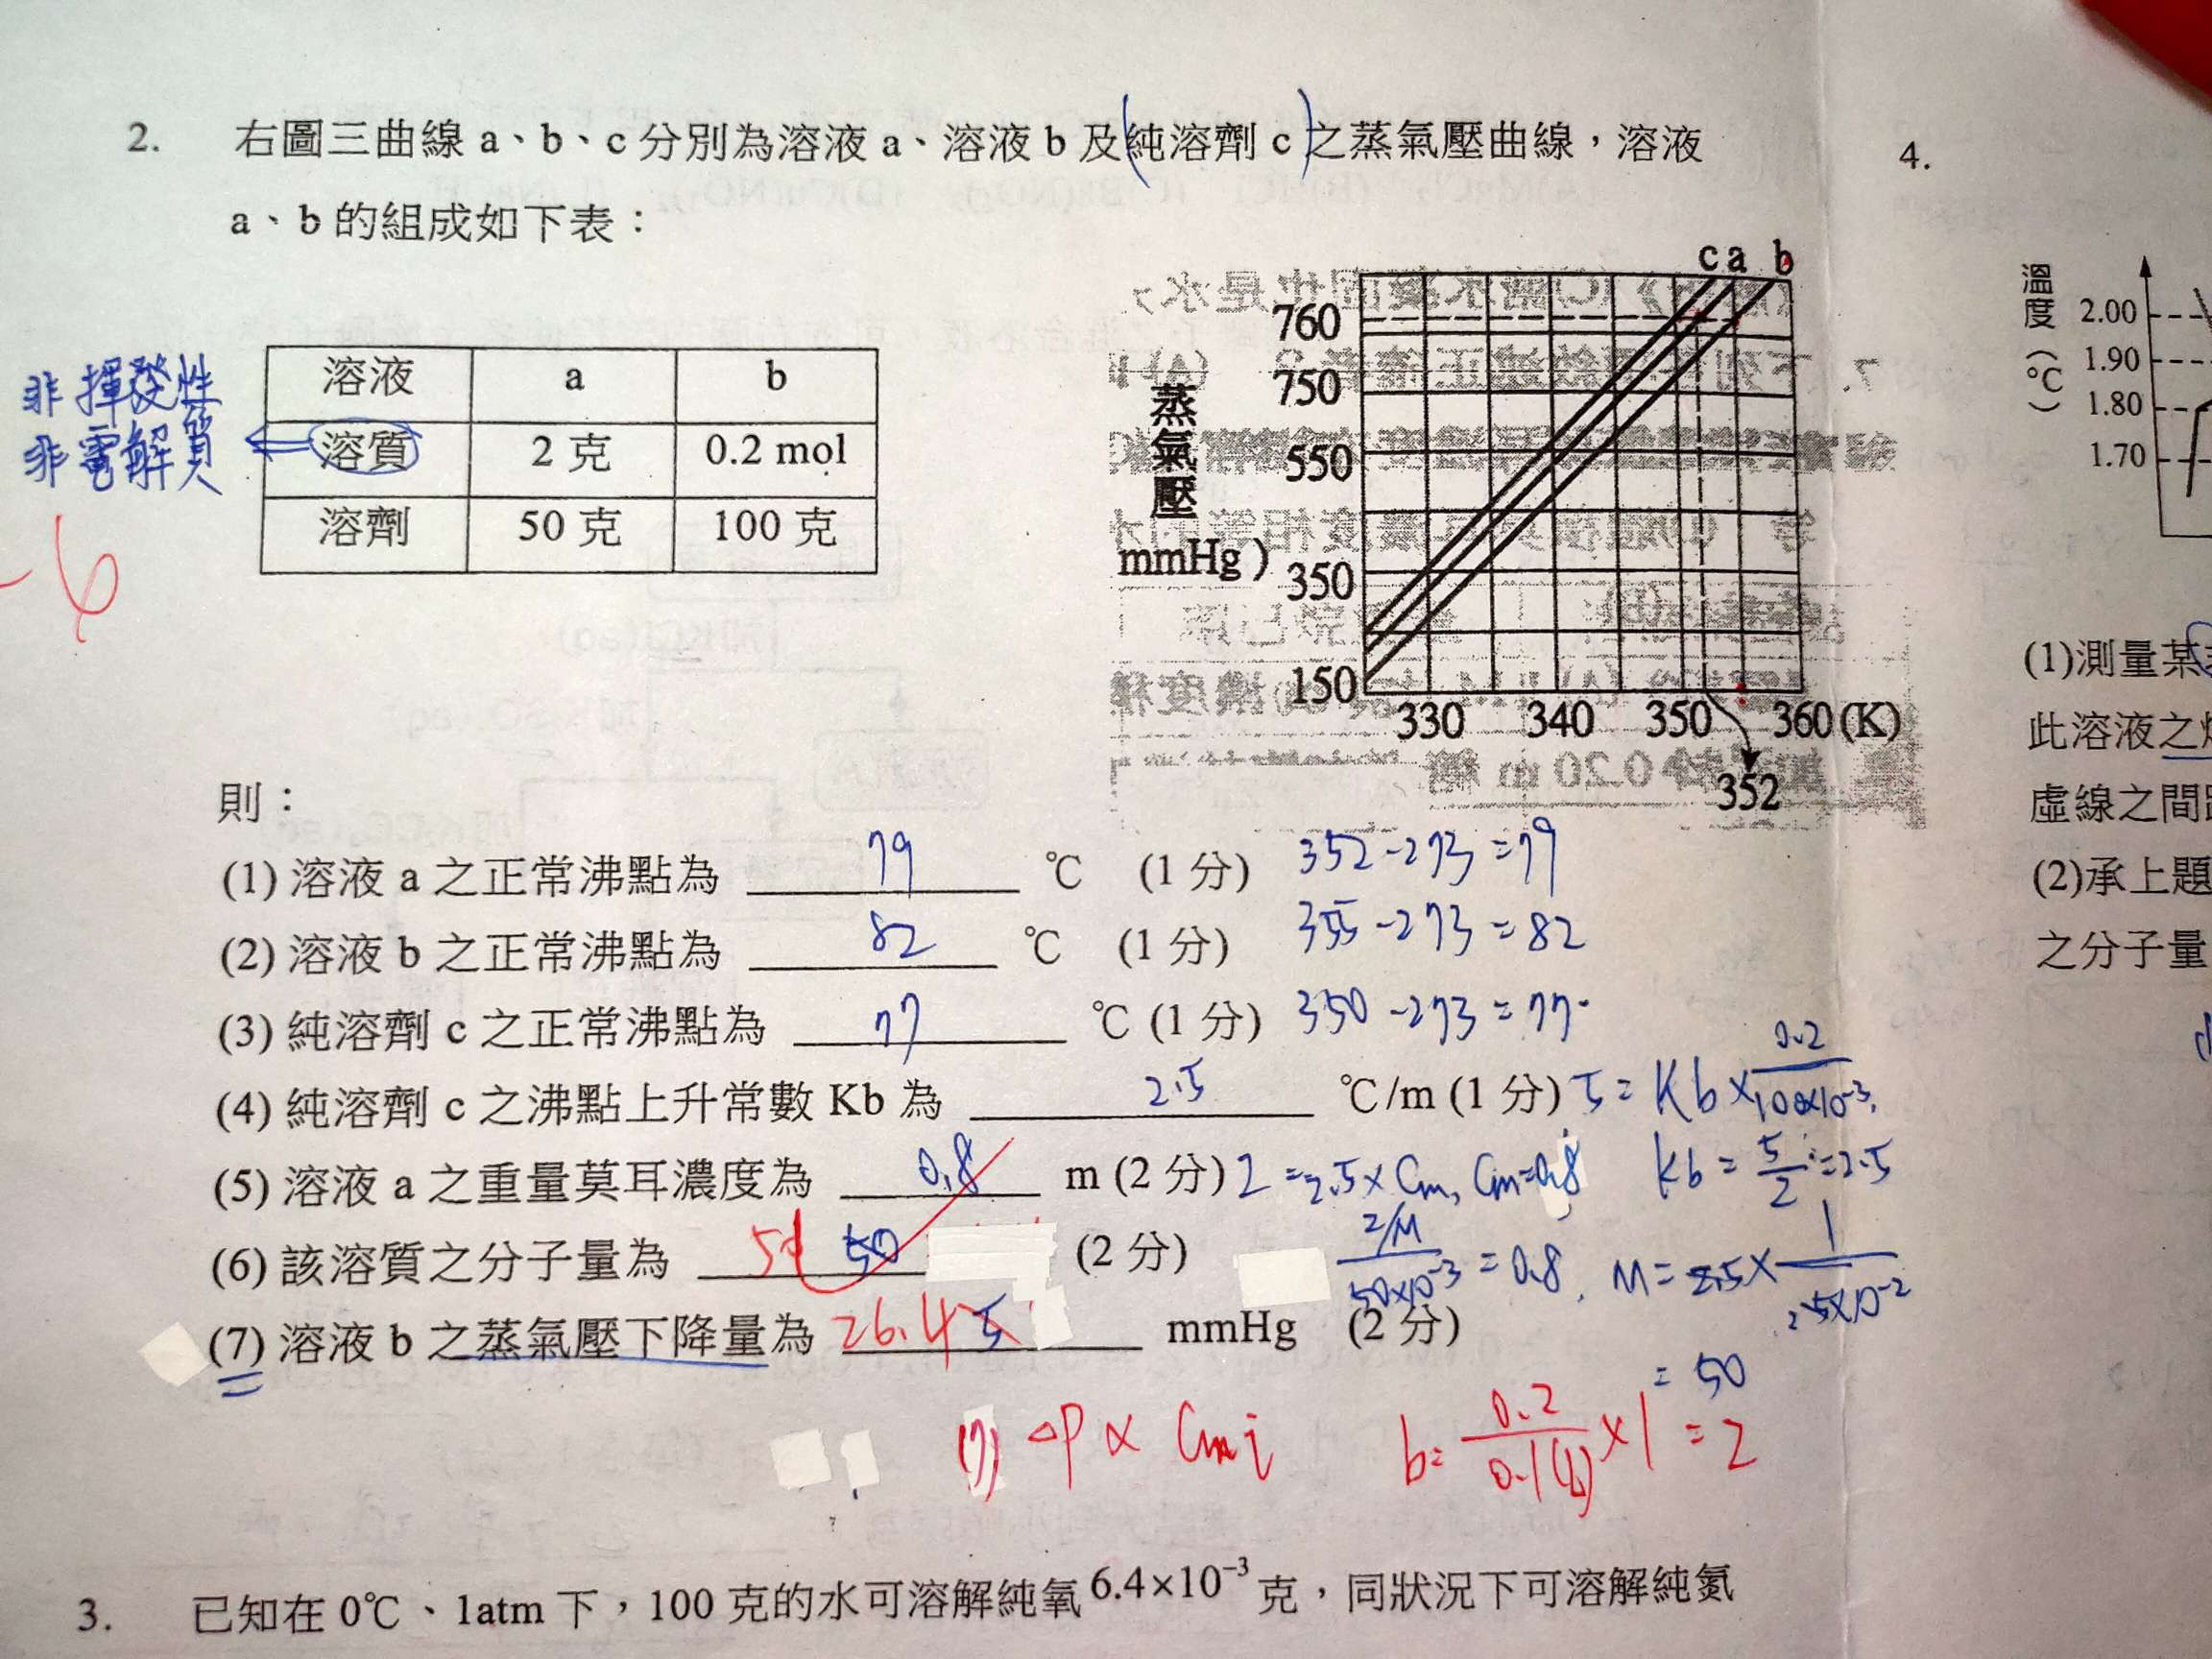 2. 右圖三曲線 a、b、c 分別為溶液 a、溶液 b 及(純溶劑 c)之蒸氣壓曲線，溶液
a、b 的組成如下表：
非揮發性
非電解質
溶液 a b
溶質 2 克 0.2 mol
溶劑 50 克 100 克
-6
c a b
760
750
550
350
150
蒸氣壓
mmHg )
330 340 350 360 (K)
352
則：
(1) 溶液 a 之正常沸點為 79 ℃ (1 分) 352-273=79
(2) 溶液 b 之正常沸點為 82 ℃ (1 分) 355-273=82
(3) 純溶劑 c 之正常沸點為 77 ℃ (1 分) 350-273=77
(4) 純溶劑 c 之沸點上升常數 Kb 為 2.5 ℃/m (1 分) 5=Kb×0.2/100×10⁻³
Kb=5/2=2.5
(5) 溶液 a 之重量莫耳濃度為 0.8 m (2 分) 2=2.5×Cm, Cm=0.8
(6) 該溶質之分子量為 50 (2 分) 2/M / 50×10⁻³ =0.8, M=2.5×1/2.5×10⁻²
=50
(7) 溶液 b 之蒸氣壓下降量為 26.4 5 mmHg (2 分)
(7) △P ∝ Cm i b= 0.2/0.1 ×1=2
3. 已知在 0℃、1atm 下，100 克的水可溶解純氧 6.4×10⁻³ 克，同狀況下可溶解純氮
4.
溫度(℃)
2.00
1.90
1.80
1.70
(1)測量某
此溶液之
虛線之間
(2)承上題
之分子量